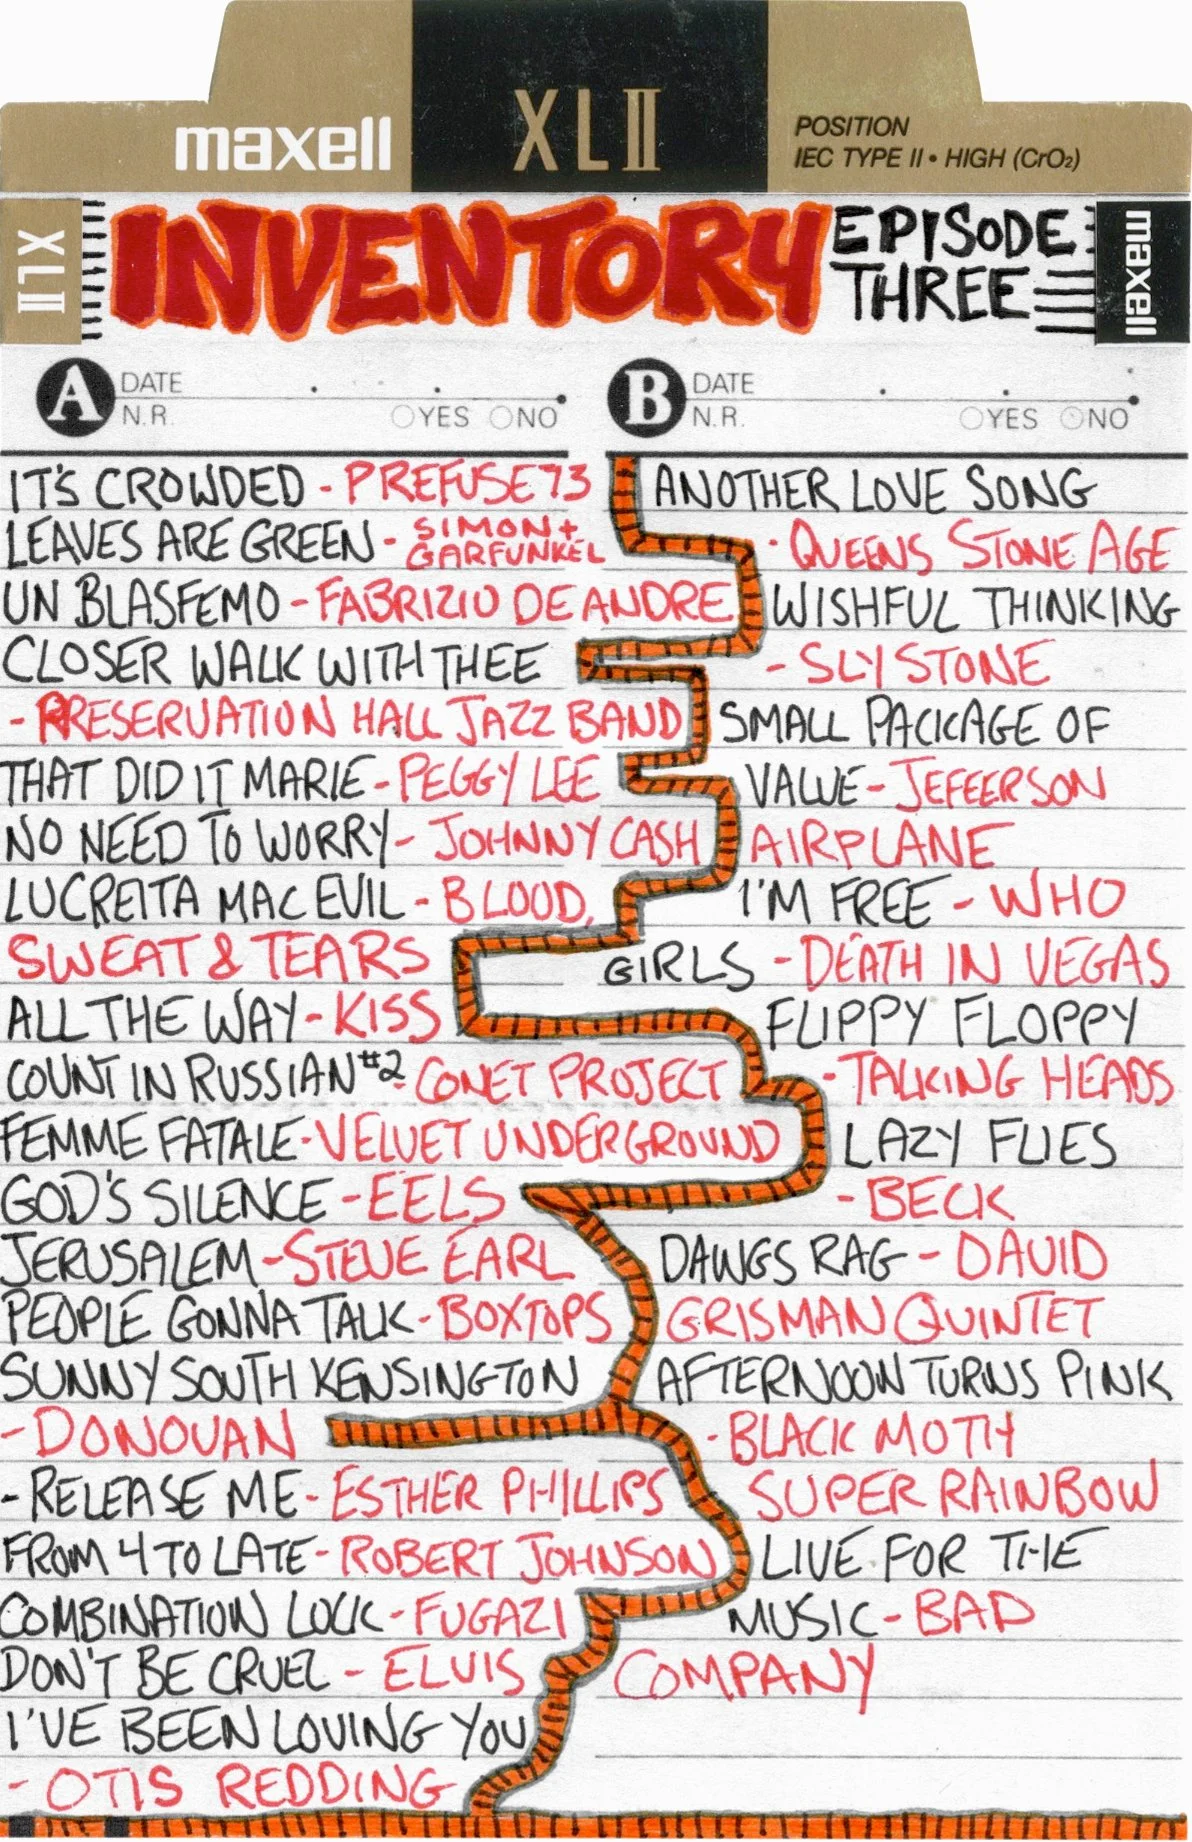 maxell
XLII
POSITION
IEC TYPE II • HIGH (CrO₂)
XLII
INVENTORY
EPISODE
THREE
maxell
A DATE
N.R. YES NO
B DATE
N.R. YES NO
IT'S CROWDED - PREFUSE 73
LEAVES ARE GREEN - SIMON +
GARFUNKEL
UN BLASFEMO - FABRIZIO DE ANDRE
CLOSER WALK WITH THEE
- PRESERVATION HALL JAZZ BAND
THAT DID IT MARIE - PEGGY LEE
NO NEED TO WORRY - JOHNNY CASH
LUCREITA MAC EVIL - BLOOD,
SWEAT & TEARS
ALL THE WAY - KISS
COUNT IN RUSSIAN #2 - CONET PROJECT
FEMME FATALE - VELVET UNDERGROUND
GOD'S SILENCE - EELS
JERUSALEM - STEVE EARL
PEOPLE GONNA TALK - BOXTOPS
SUNNY SOUTH KENSINGTON
- DONOVAN
- RELEASE ME - ESTHER PHILLIPS
FROM 4 TO LATE - ROBERT JOHNSON
COMBINATION LOCK - FUGAZI
DON'T BE CRUEL - ELVIS
I'VE BEEN LOVING YOU
- OTIS REDDING
ANOTHER LOVE SONG
- QUEENS STONE AGE
WISHFUL THINKING
- SLY STONE
SMALL PACKAGE OF
VALUE - JEFEERSON
AIRPLANE
I'M FREE - WHO
GIRLS - DEATH IN VEGAS
FLIPPY FLOPPY
- TALKING HEADS
LAZY FLIES
- BECK
DAWGS RAG - DAVID
GRISMAN QUINTET
AFTERNOON TURNS PINK
- BLACK MOTH
SUPER RAINBOW
LIVE FOR THE
MUSIC - BAD
COMPANY